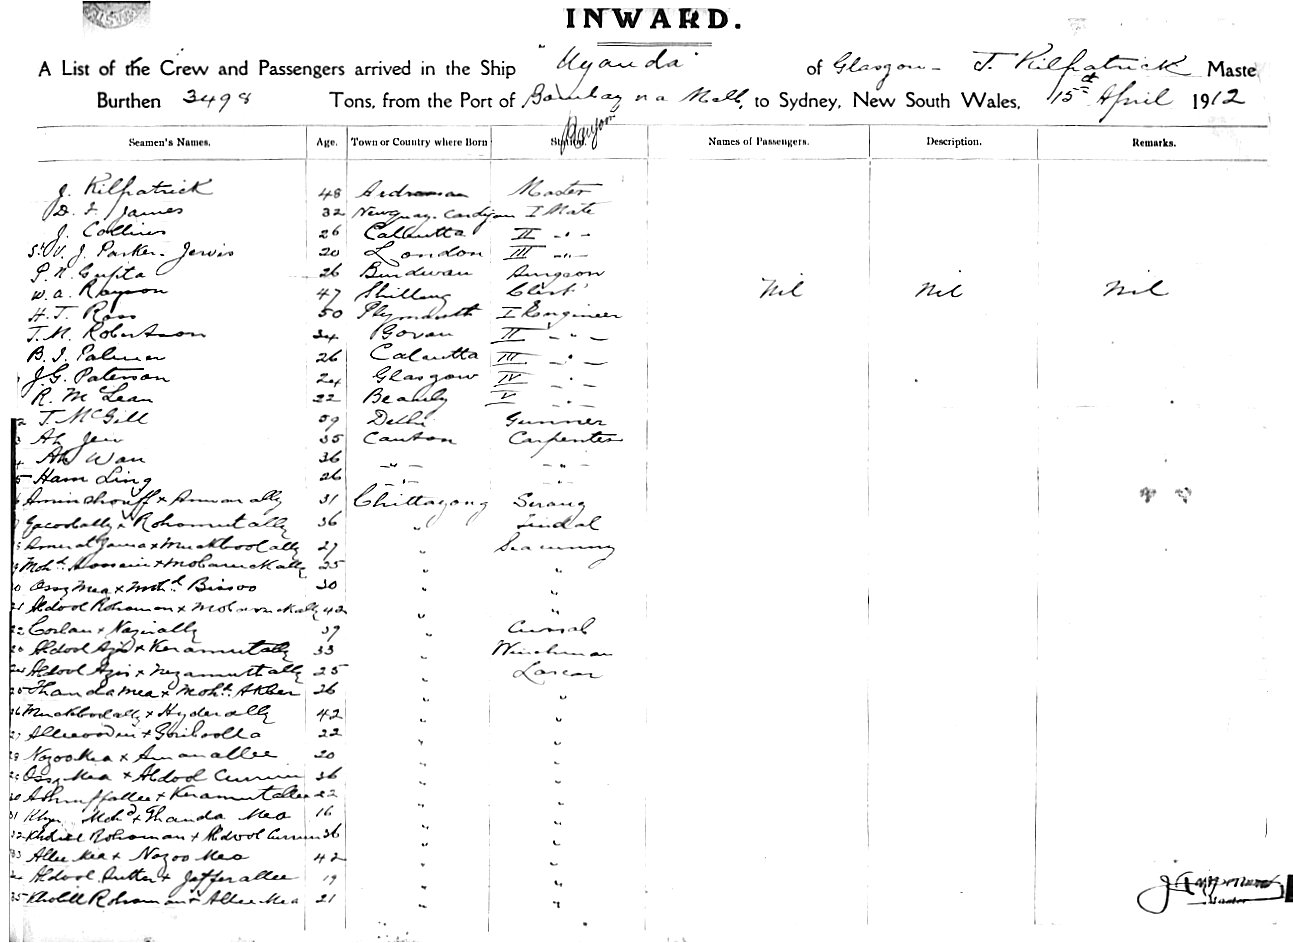 INWARD.
A List of the Crew and Passengers arrived in the Ship "Uganda" of Glasgow - J. Kilpatrick Maste
Burthen 3498 Tons, from the Port of Bombay via Melb, to Sydney, New South Wales, 15th April 1912
Rangoon
Seamen's Names. Age. Town or Country where Born Station. Names of Passengers. Description. Remarks.
J. Kilpatrick 48 Ardrossan Master
D. J. James 32 Newquay. Cardigan I Mate
J. Collins 26 Calcutta II " "
St. V. J. Parker-Jervis 20 London III " "
P. N. Gupta 26 Burdwan Surgeon
W. A. Rayson 47 Shillong Clerk Nil Nil Nil
H. J. Ross 50 Plymouth I Engineer
J. M. Robertson 34 Govan II - " -
B. J. Palmer 26 Calcutta III - " -
J. G. Paterson 24 Glasgow IV - " -
R. McLean 22 Beauly V - " -
2 J. McGill 59 Delhi Gunner
3 Ah Jew 35 Canton Carpenter
4 Ah Wan 36 - " - - " -
5 Ham Ling 26 - " - - " -
6 Aminshouff x Anwar ally 31 Chittagong Serang
Yacoolally x Rohomut ally 36 " Tindal
8 x Muckbool ally 27 " Seacunny
9 Mohd. Hossein x Mobaruck ally 35 " "
20 Ossy Mea x Mohd. Bissoo 30 " "
21 Abdool Rohoman x Mobaruck ally 42 " "
22 x Nazirally 39 " Cassab
23 Abdool Azis x Keramutally 33 " Winchman
24 Abdool Azis x Nezamutt ally 25 " Lascar
25 Thanda Mea x Moht. Akber 26 " "
26 Muckbool ally x Hyder ally 42 " "
27 x Goriboolla 22 " "
28 Nozoo Mea x Aman allee 20 " "
29 Ossy Mea x Abdool Currim 36 " "
30 Ashruff allee x Keramut allee 22 " "
31 Mohd x Thanda Mea 16 " "
32 Rohoman x Abdool Currim 36 " "
33 Allee Mea x Nozoo Mea 42 " "
34 Abdool Sutter x Jaffer allee 19 " "
35 Kholill Rohoman x Allee Mea 21 " "
Master